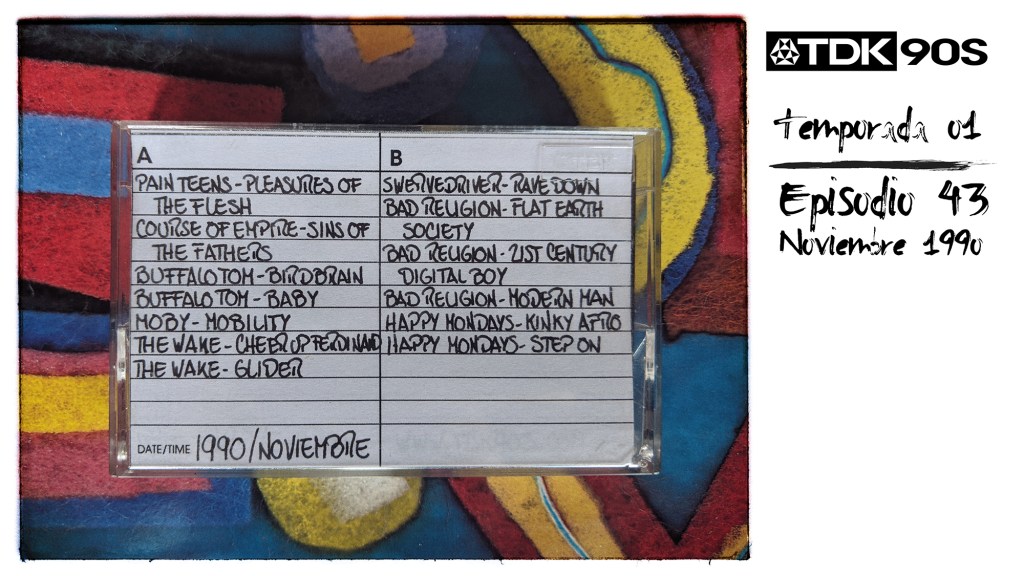 A
PAIN TEENS - PLEASURES OF
THE FLESH
COURSE OF EMPIRE - SINS OF
THE FATHERS
BUFFALO TOM - BIRDBRAIN
BUFFALO TOM - BABY
MOBY - MOBILITY
THE WAKE - CHEER UP FERDINAND
THE WAKE - GLIDER
DATE/TIME 1990/NOVIEMBRE
B
SWERVEDRIVER - RAVE DOWN
BAD RELIGION - FLAT EARTH
SOCIETY
BAD RELIGION - 21ST CENTURY
DIGITAL BOY
BAD RELIGION - MODERN MAN
HAPPY MONDAYS - KINKY AFRO
HAPPY MONDAYS - STEP ON
TDK 90S
Temporada 01
Episodio 43
Noviembre 1990